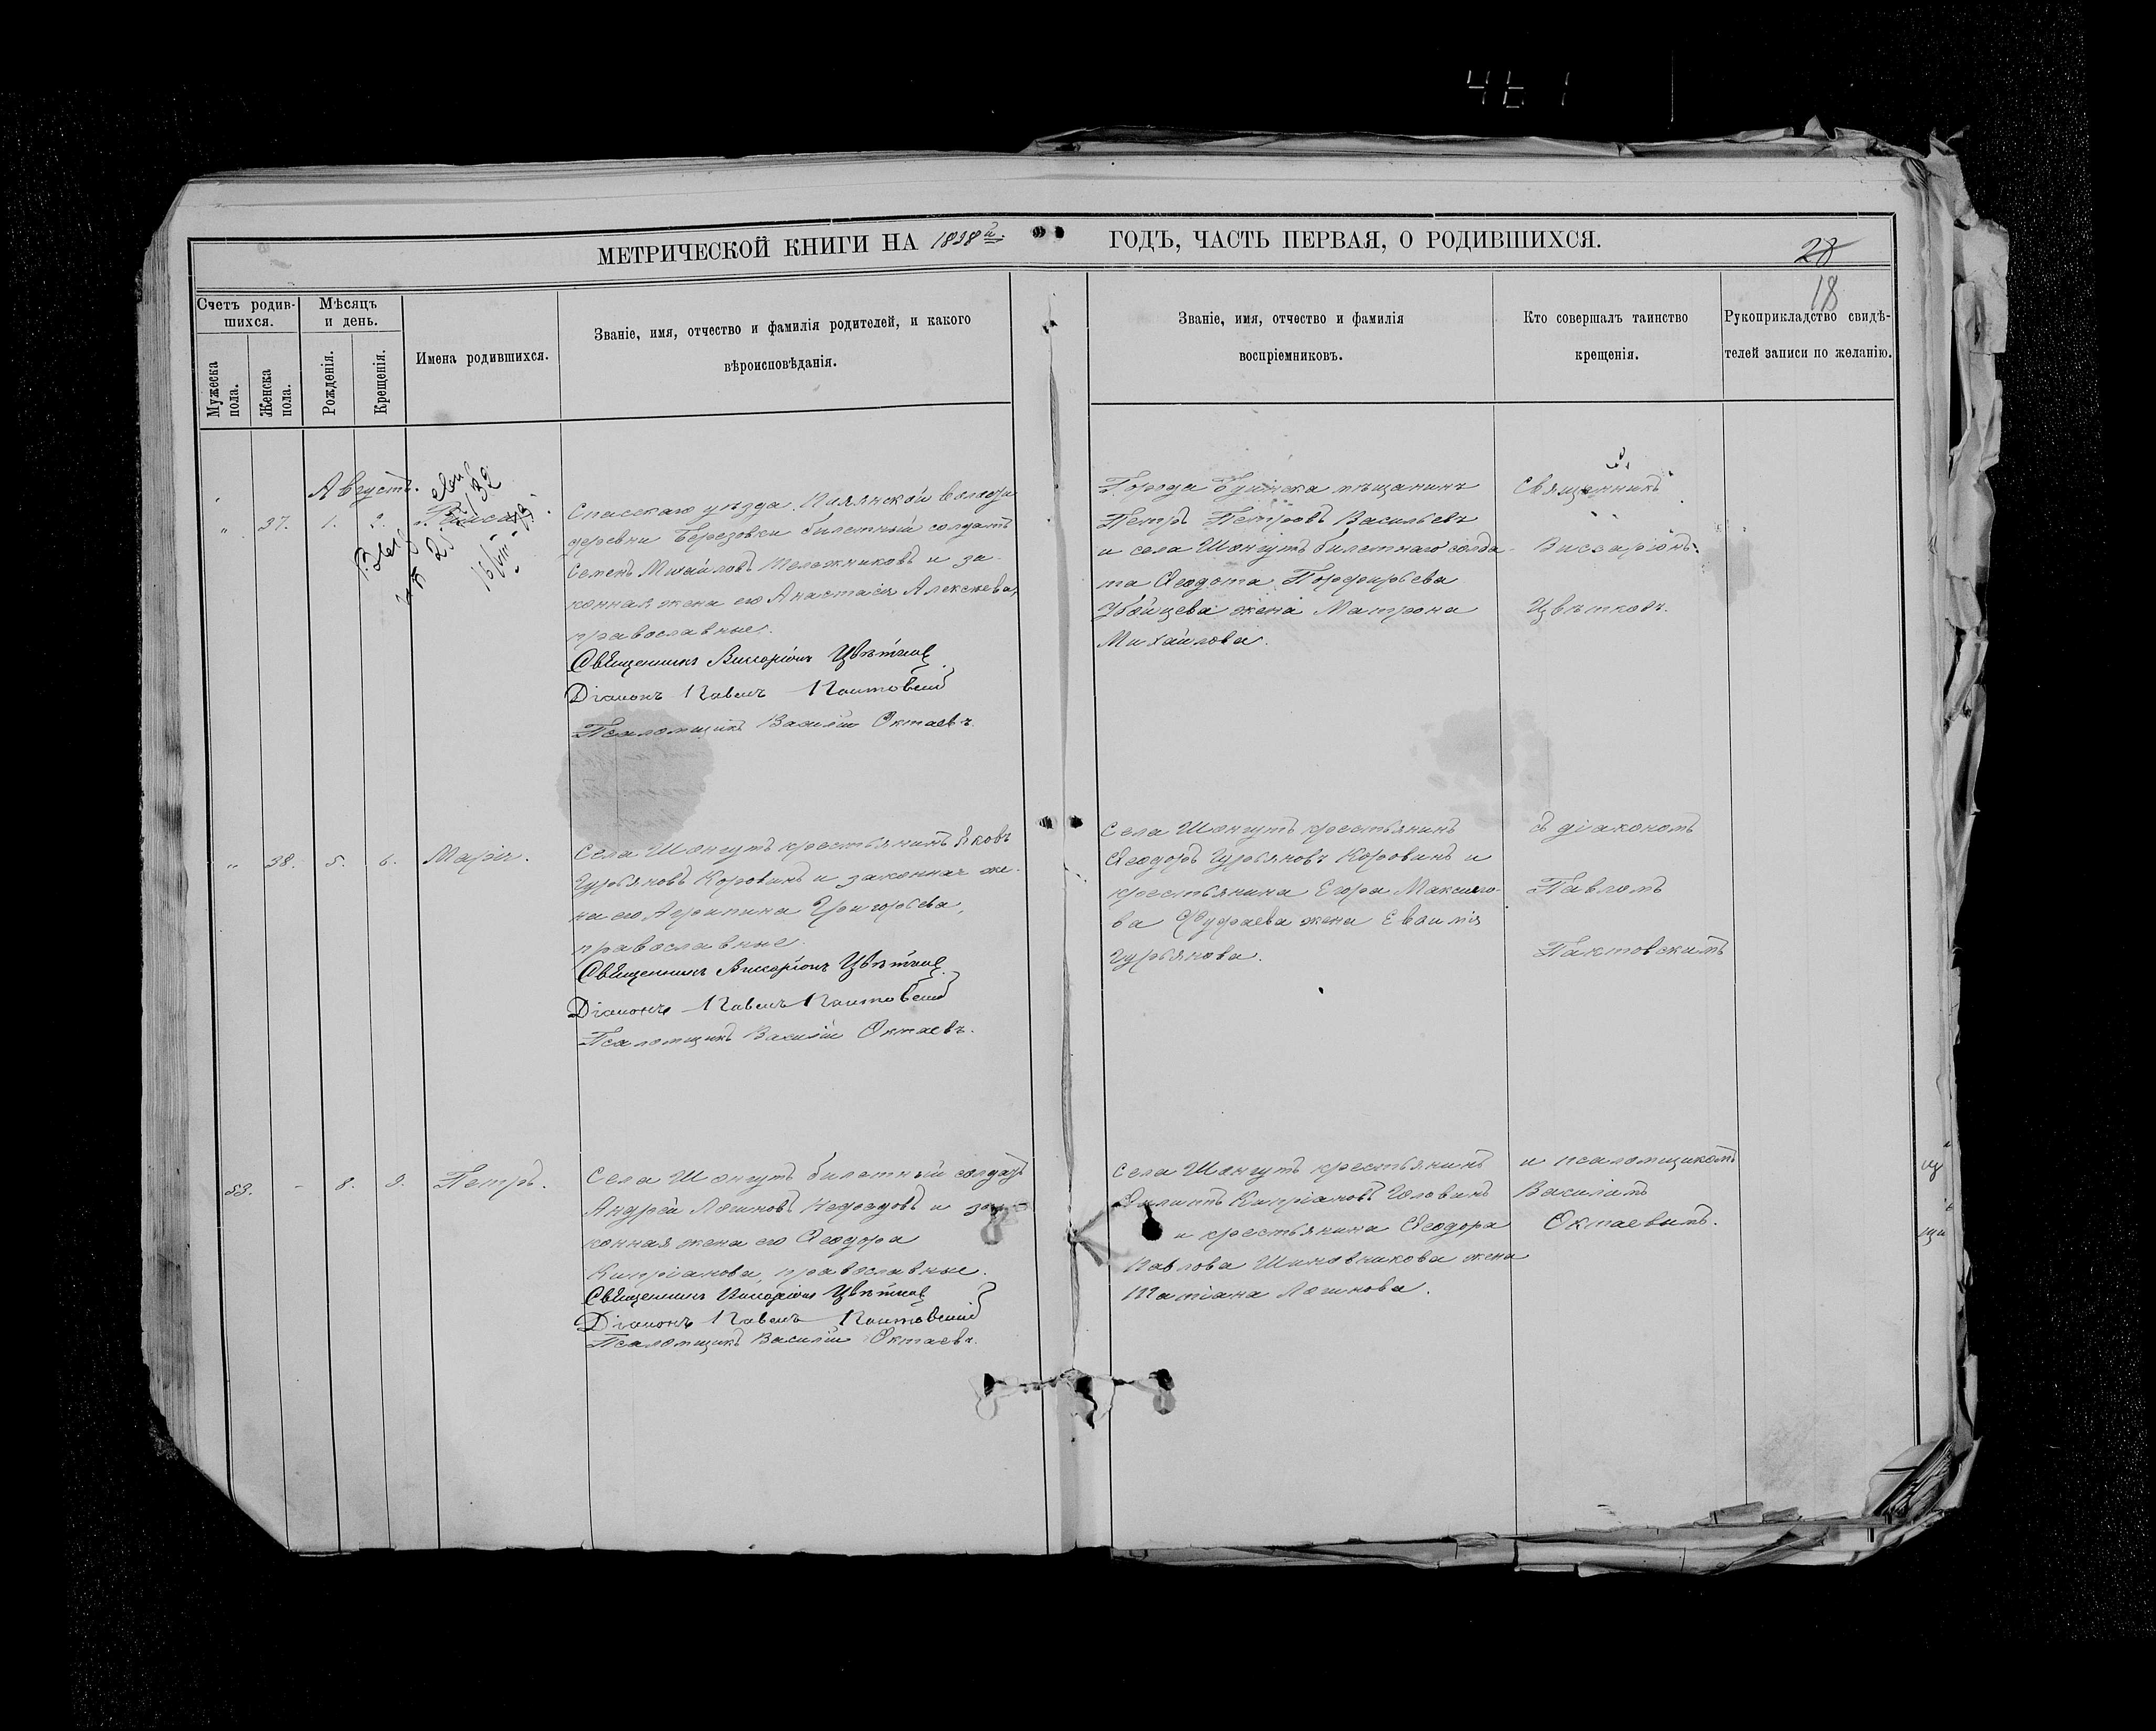 461
МЕТРИЧЕСКОЙ КНИГИ НА 1898й ГОДЪ, ЧАСТЬ ПЕРВАЯ, О РОДИВШИХСЯ.
28
18
Счетъ родив-
шихся.
Мужеска
пола.
Женска
пола.
Мѣсяцъ
и день.
Рожденія.
Крещенія.
Имена родившихся.
Званіе, имя, отчество и фамилія родителей, и какого
вѣроисповѣданія.
Званіе, имя, отчество и фамилія
воспріемниковъ.
Кто совершалъ таинство
крещенія.
Рукоприкладство свидѣ-
телей записи по желанію.
Августъ.
" 37. 1. 2. Раиса.
Спасскаго уѣзда
деревни Березовки билетный солдатъ
Семенъ Михайловъ Тележниковъ и за-
конная жена его Анастасія Алексѣева,
православные.
Священникъ Виссаріонъ Цвѣтковъ
Діаконъ Павелъ Пактовскій
Псаломщикъ Василій Октаевъ.
Города Буинска мѣщанинъ
Петръ Петровъ Васильевъ
и села Шонгутъ билетнаго солда-
та Ѳеодота Порфирьева
Убойцева жена Матрона
Михайлова.
Священникъ
Виссаріонъ
Цвѣтковъ.
" 38. 5. 6. Марія.
Села Шонгутъ крестьянинъ Яковъ
Гурьяновъ Коровинъ и законная же-
на его Агрипина Григорьева,
православные.
Священникъ Виссаріонъ Цвѣтковъ
Діаконъ Павелъ Пактовскій
Псаломщикъ Василій Октаевъ.
Села Шонгутъ крестьянинъ
Ѳеодоръ Гурьяновъ Коровинъ и
крестьянина Егора Максимо-
ва жена Евѳимія
Гурьянова.
съ діакономъ
Павломъ
Пактовскимъ
53. - 8. 9. Петръ.
Села Шонгутъ билетный солдатъ
Андрей Логиновъ и за-
конная жена его Ѳеодора
Кипріанова, православные.
Священникъ Виссаріонъ Цвѣтковъ
Діаконъ Павелъ Пактовскій
Псаломщикъ Василій Октаевъ.
Села Шонгутъ крестьянинъ
Филиппъ Кипріановъ
и крестьянина Ѳеодора
Павлова Шиповникова жена
Татіана Логинова.
и псаломщикомъ
Василіемъ
Октаевымъ.